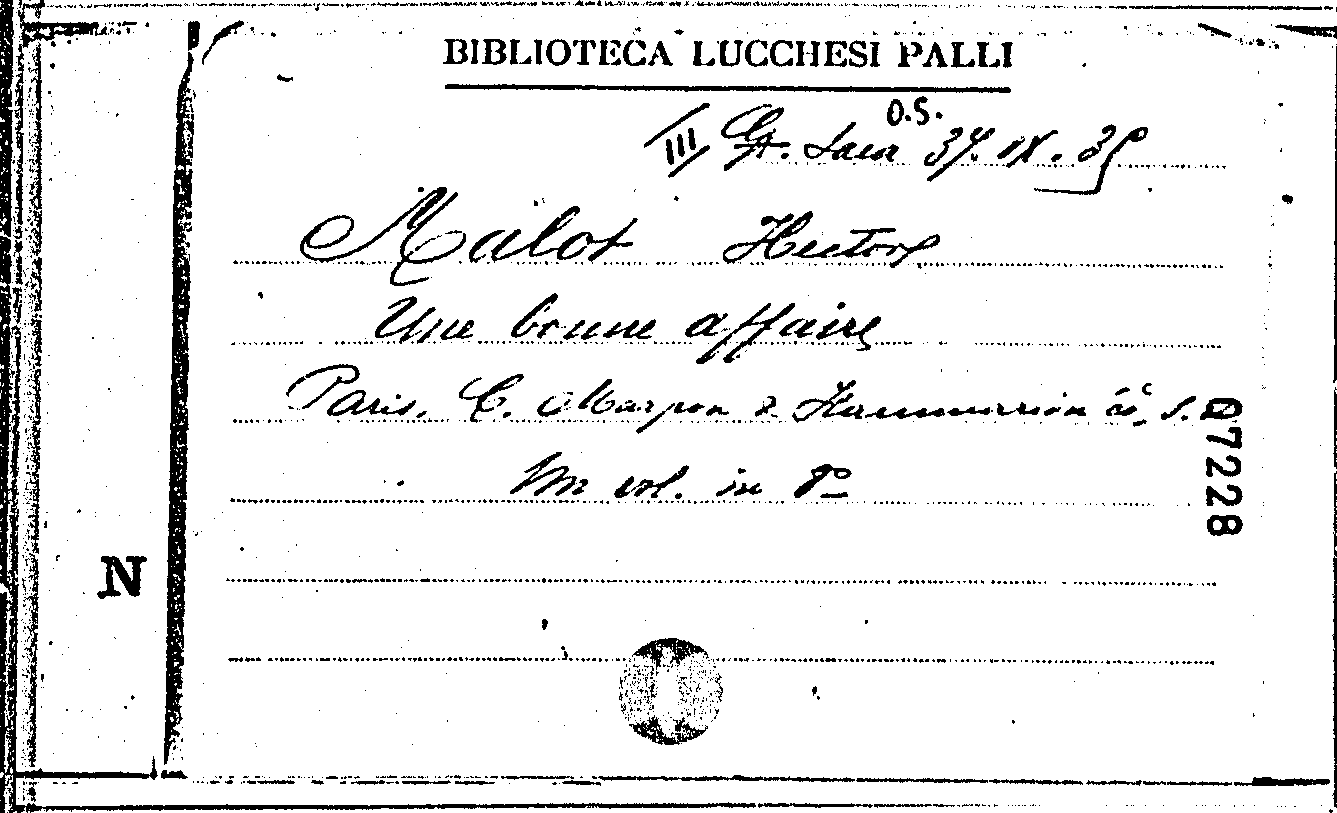 BIBLIOTECA LUCCHESI PALLI
O.S.
III
Malot Hector
Une bonne affaire
Paris. C. Marpon & Flammarion éd. S.
Un vol. in 8º
07228
N